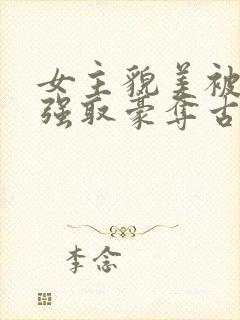 女主貌美被
强取豪夺古
李念